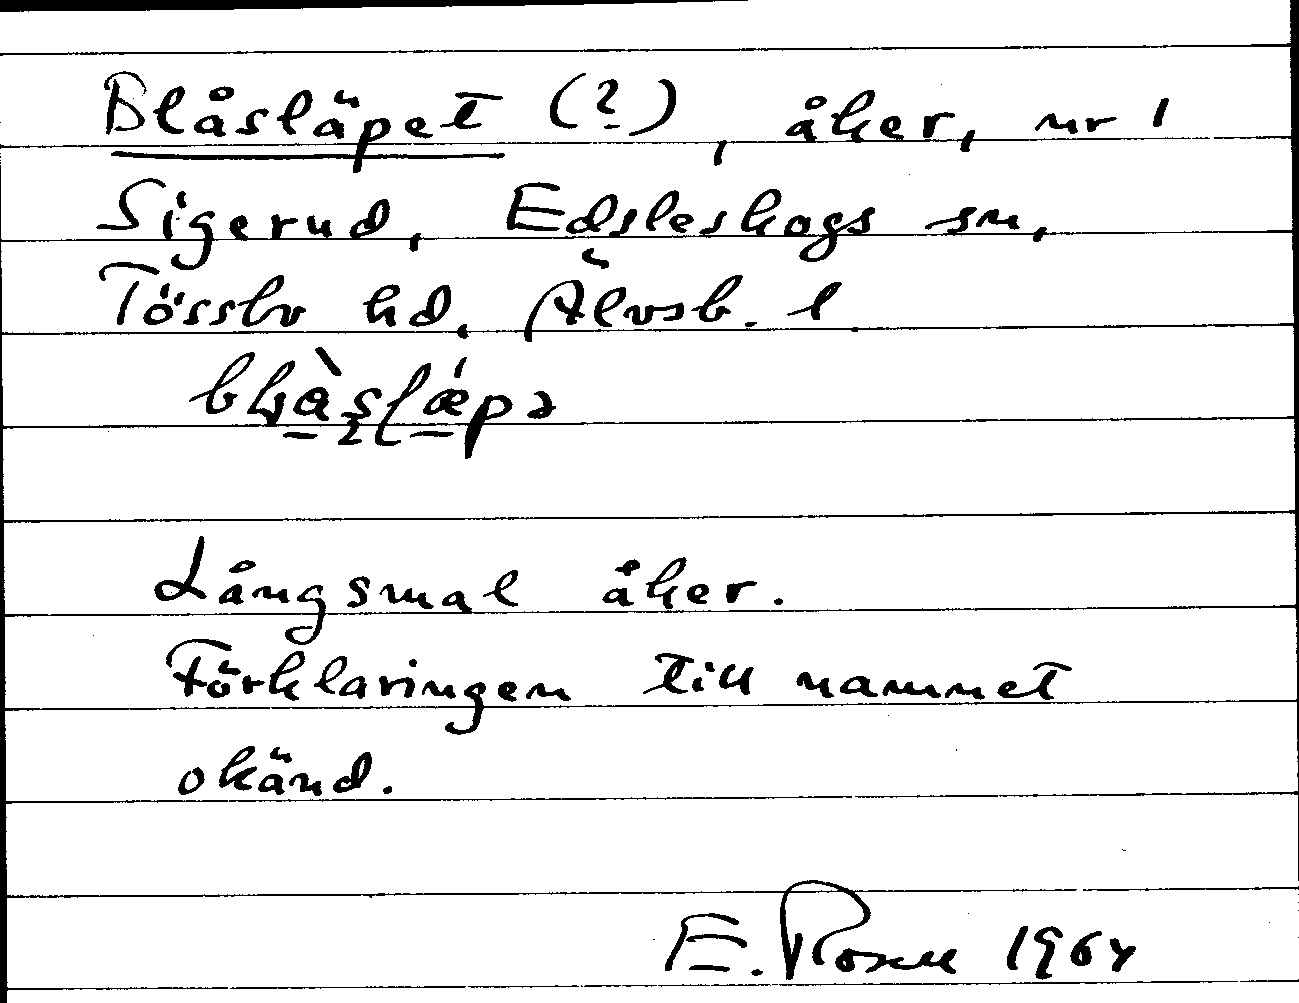 Blåsläpet (?), åker, nr 1
Sigerud, Edsleskogs sn,
Tössbo hd. Älvsb. l
Långsmal åker.
Förklaringen till namnet
okänd.
E. Rosell 1964